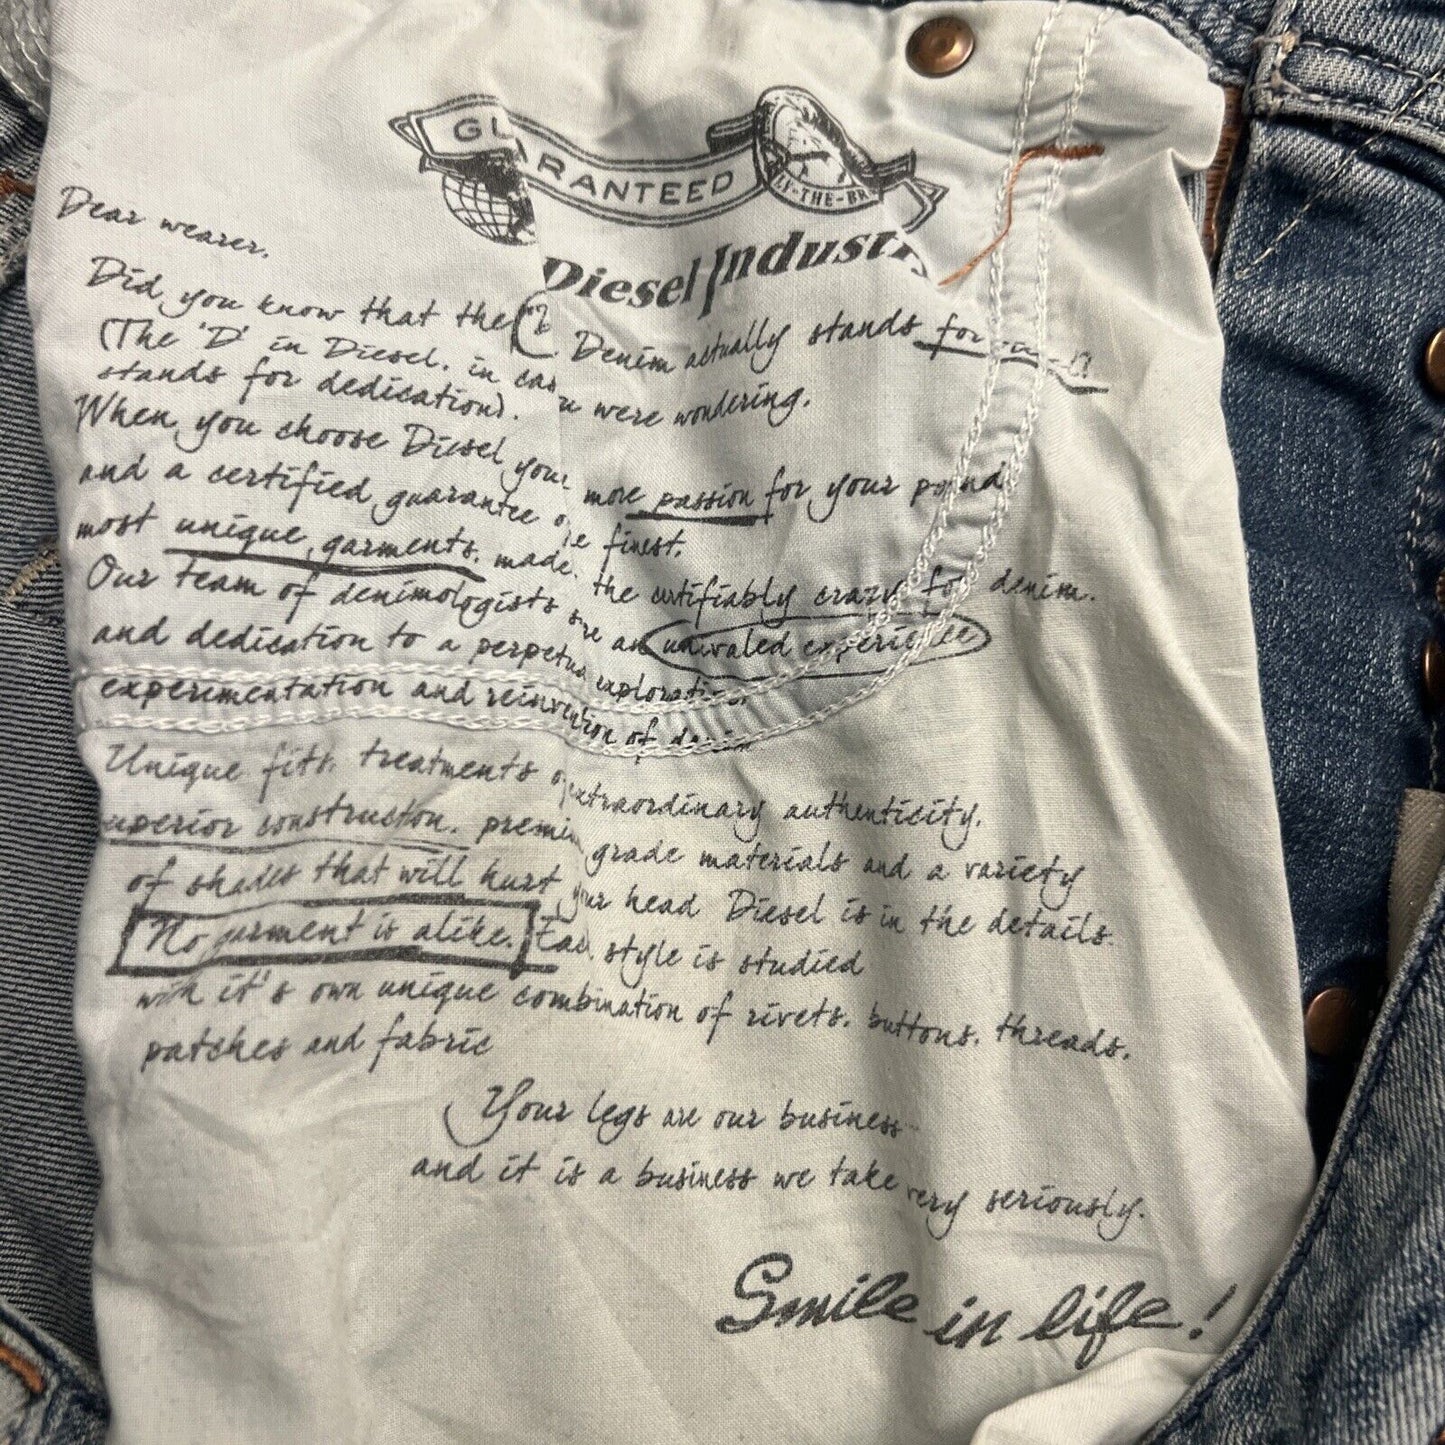 GUARANTEED
-THE-BR
Diesel Industry
Dear wearer,
Did you know that the Denim actually stands for
(The 'D' in Diesel, in case you were wondering,
stands for dedication).
When you choose Diesel your more passion for your pound
and a certified guarantee of the finest,
most unique garments, made. the certifiably crazy for denim.
Our team of denimologists are an unrivaled experience
and dedication to a perpetual exploration
experimentation and reinvention of denim
Unique fits, treatments extraordinary authenticity,
superior construction, premium grade materials and a variety
of shades that will hurt your head Diesel is in the details.
No garment is alike. Each style is studied
with it's own unique combination of rivets, buttons, threads,
patches and fabric
Your legs are our business
and it is a business we take very seriously.
Smile in life!